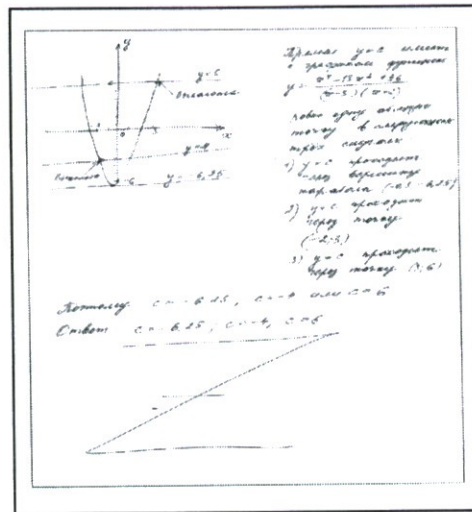 y
y = c
x
y = -6,25
Прямая y = c имеет
с графиком функции
y =
(x-3)(x+2)
ровно одну общую
точку в следующих
трёх случаях
1) y = c проходит
через вершину
параболы (-0,5; -6,25)
2) y = c проходит
через точку
3) y = c проходит
через точку (3; 6)
Поэтому c = -6,25, c = -4 или c = 6
Ответ c = -6,25, c = -4, c = 6